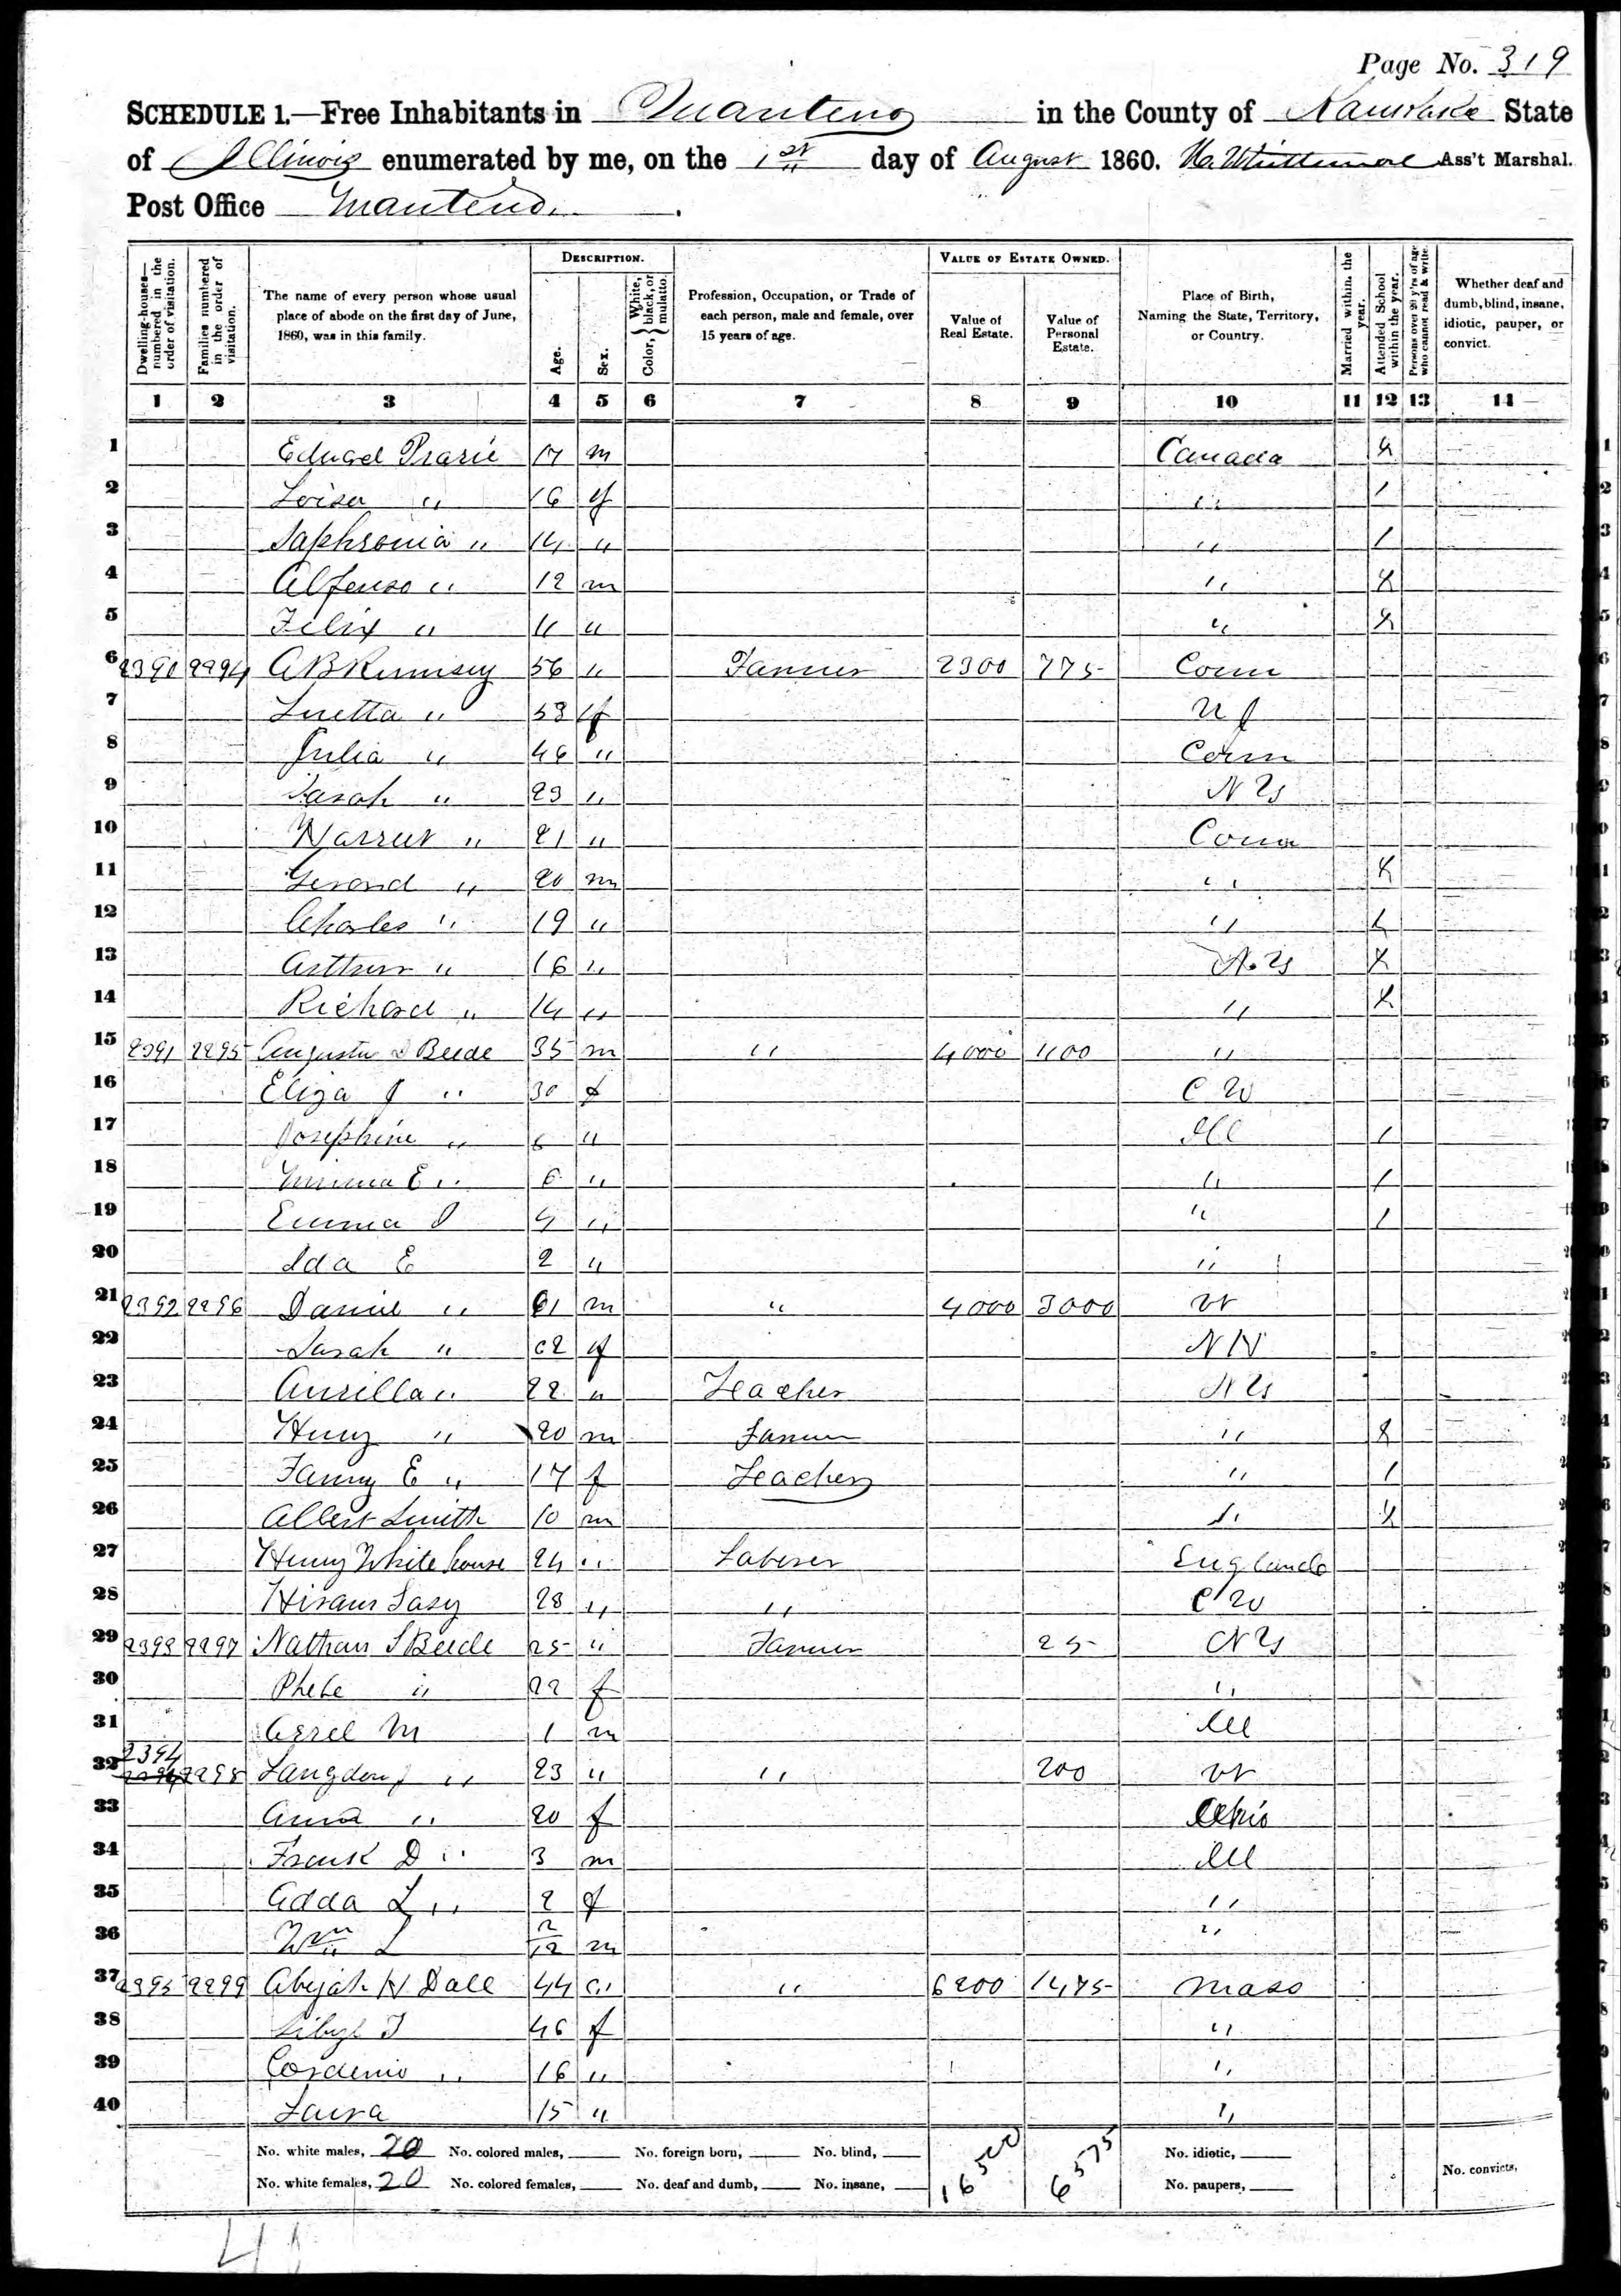 Page No. 319
SCHEDULE 1.—Free Inhabitants in Manteno in the County of Kankakee State
of Illinois enumerated by me, on the 1st day of August 1860. Whittemore Ass't Marshal.
Post Office Manteno.
Dwelling-houses—numbered in the order of visitation. Families numbered in the order of visitation. The name of every person whose usual place of abode on the first day of June, 1860, was in this family. DESCRIPTION. Age. Sex. Color, { White, black, or mulatto. Profession, Occupation, or Trade of each person, male and female, over 15 years of age. VALUE OF ESTATE OWNED. Value of Real Estate. Value of Personal Estate. Place of Birth, Naming the State, Territory, or Country. Married within the year. Attended School within the year. Persons over 20 y'rs of age who cannot read & write. Whether deaf and dumb, blind, insane, idiotic, pauper, or convict.
1 2 3 4 5 6 7 8 9 10 11 12 13 14
1 Prarie 17 m Canada
2 Loisa " 16 f " / 2
3 Saphronia " 14 " " / 3
4 Alfonso " 12 m " 4
5 Felix " 11 " " 5
6 2390 2294 A B Rumsey 56 " Farmer 2300 775 Conn 6
7 Luretta " 53 f N J 7
8 Julia " 46 " Conn 8
9 Sarah " 23 " N Y 9
10 Harriet " 21 " Conn
11 Gerard " 20 m "
12 Charles " 19 " "
13 Arthur " 16 " N. Y
14 Richard " 14 " "
15 2391 2295 Augustus D Beede 35 m " 4000 1100 "
16 Eliza J " 30 f C W
17 Josephine " " Ill /
18 E " 6 " " /
19 Emma " " /
20 Ida E 2 " "
21 2392 2296 Daniel " 61 m " 4000 3000 Vt
22 Sarah " 62 f N H
23 Aurilla " 22 " Teacher N Y
24 Henry " 20 m Farmer "
25 Fanny E " 17 f Teacher " /
26 Albert Smith 10 m "
27 Henry Whitehouse 24 " Laborer England
28 Hiram 28 " " C W
29 2393 2297 Nathan S Beede 25 " Farmer 25 N Y
30 Phebe " 22 f "
31 M 1 m Ill
32 2394 2298 Langdon J " 23 " " 200 Vt
33 Anna " 20 f Ohio
34 Frank D " 3 m Ill
35 Adda L " 2 f "
36 Wm L 2/12 m "
37 2395 2299 Abijah H Dall 44 " " 6200 1475 Mass
38 46 f "
39 " 16 " "
40 Laura 15 " "
No. white males, 20 No. colored males, No. foreign born, No. blind, 16500 6575 No. idiotic,
No. white females, 20 No. colored females, No. deaf and dumb, No. insane, No. paupers, No. convicts,